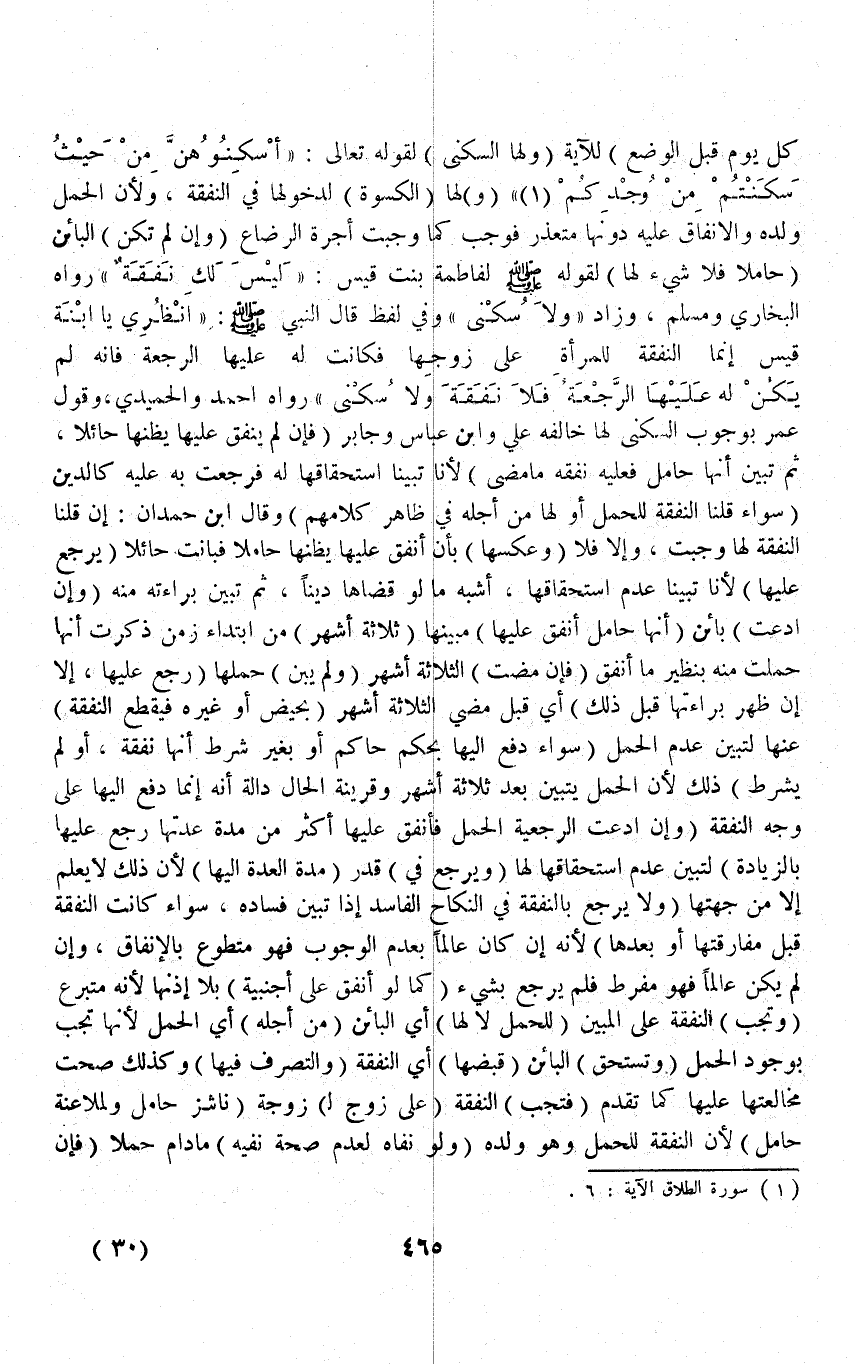 كل يوم قبل الوضع ) للآية ( ولها السكنى ) لقوله تعالى : « أَسْكِنُوهُنَّ مِنْ حَيْثُ
سَكَنْتُمْ مِنْ وُجْدِكُمْ (١) » ( و ) لها ( الكسوة ) لدخولها في النفقة ، ولأن الحمل
ولده والانفاق عليه دونها متعذر فوجب كما وجبت أجرة الرضاع ( وإن لم تكن ) البائن
( حاملا فلا شيء لها ) لقوله ﷺ لفاطمة بنت قيس : « لَيْسَ لَكِ نَفَقَةٌ » رواه
البخاري ومسلم ، وزاد « ولاَ سُكْنى » وفي لفظ قال النبي ﷺ : « انْظُرِي يا ابْنَةَ
قيس إنما النفقة للمرأة على زوجها فكانت له عليها الرجعة فانه لم
يَكُنْ له عَلَيْهَا الرَّجْعَةُ فَلاَ نَفَقَةَ وَلا سُكْنى » رواه احمد والحميدي ، وقول
عمر بوجوب السكنى لها خالفه علي وابن عباس وجابر ( فإن لم ينفق عليها يظنها حائلا ،
ثم تبين أنها حامل فعليه نفقه مامضى ) لأنا تبينا استحقاقها له فرجعت به عليه كالدين
( سواء قلنا النفقة للحمل أو لها من أجله في ظاهر كلامهم ) وقال ابن حمدان : إن قلنا
النفقة لها وجبت ، وإلا فلا ( وعكسها ) بأن أنفق عليها يظنها حاملا فبانت حائلا ( يرجع
عليها ) لأنا تبينا عدم استحقاقها ، أشبه ما لو قضاها ديناً ، ثم تبين براءته منه ( وإن
ادعت ) بائن ( أنها حامل أنفق عليها ) مبينها ( ثلاثة أشهر ) من ابتداء زمن ذكرت أنها
حملت منه بنظير ما أنفق ( فإن مضت ) الثلاثة أشهر ( ولم يبن ) حملها ( رجع عليها ، إلا
إن ظهر براءتها قبل ذلك ) أي قبل مضي الثلاثة أشهر ( بحيض أو غيره فيقطع النفقة )
عنها لتبين عدم الحمل ( سواء دفع اليها بحكم حاكم أو بغير شرط أنها نفقة ، أو لم
يشرط ) ذلك لأن الحمل يتبين بعد ثلاثة أشهر وقرينة الحال دالة أنه إنما دفع اليها على
وجه النفقة ( وإن ادعت الرجعية الحمل فأنفق عليها أكثر من مدة عدتها رجع عليها
بالزيادة ) لتبين عدم استحقاقها لها ( ويرجع في ) قدر ( مدة العدة اليها ) لأن ذلك لايعلم
إلا من جهتها ( ولا يرجع بالنفقة في النكاح الفاسد إذا تبين فساده ، سواء كانت النفقة
قبل مفارقتها أو بعدها ) لأنه إن كان عالماً بعدم الوجوب فهو متطوع بالإنفاق ، وإن
لم يكن عالماً فهو مفرط فلم يرجع بشيء ( كما لو أنفق على أجنبية ) بلا إذنها لأنه متبرع
( وتجب ) النفقة على المبين ( للحمل لا لها ) أي البائن ( من أجله ) أي الحمل لأنها تجب
بوجود الحمل ( وتستحق ) البائن ( قبضها ) أي النفقة ( والتصرف فيها ) وكذلك صحت
مخالعتها عليها كما تقدم ( فتجب ) النفقة ( على زوج لـ ) زوجة ( ناشز حامل ولملاعنة
حامل ) لأن النفقة للحمل وهو ولده ( ولو نفاه لعدم صحة نفيه ) مادام حملا ( فإن
( ١ ) سورة الطلاق الآية : ٦ .
٤٦٥
( ٣٠ )